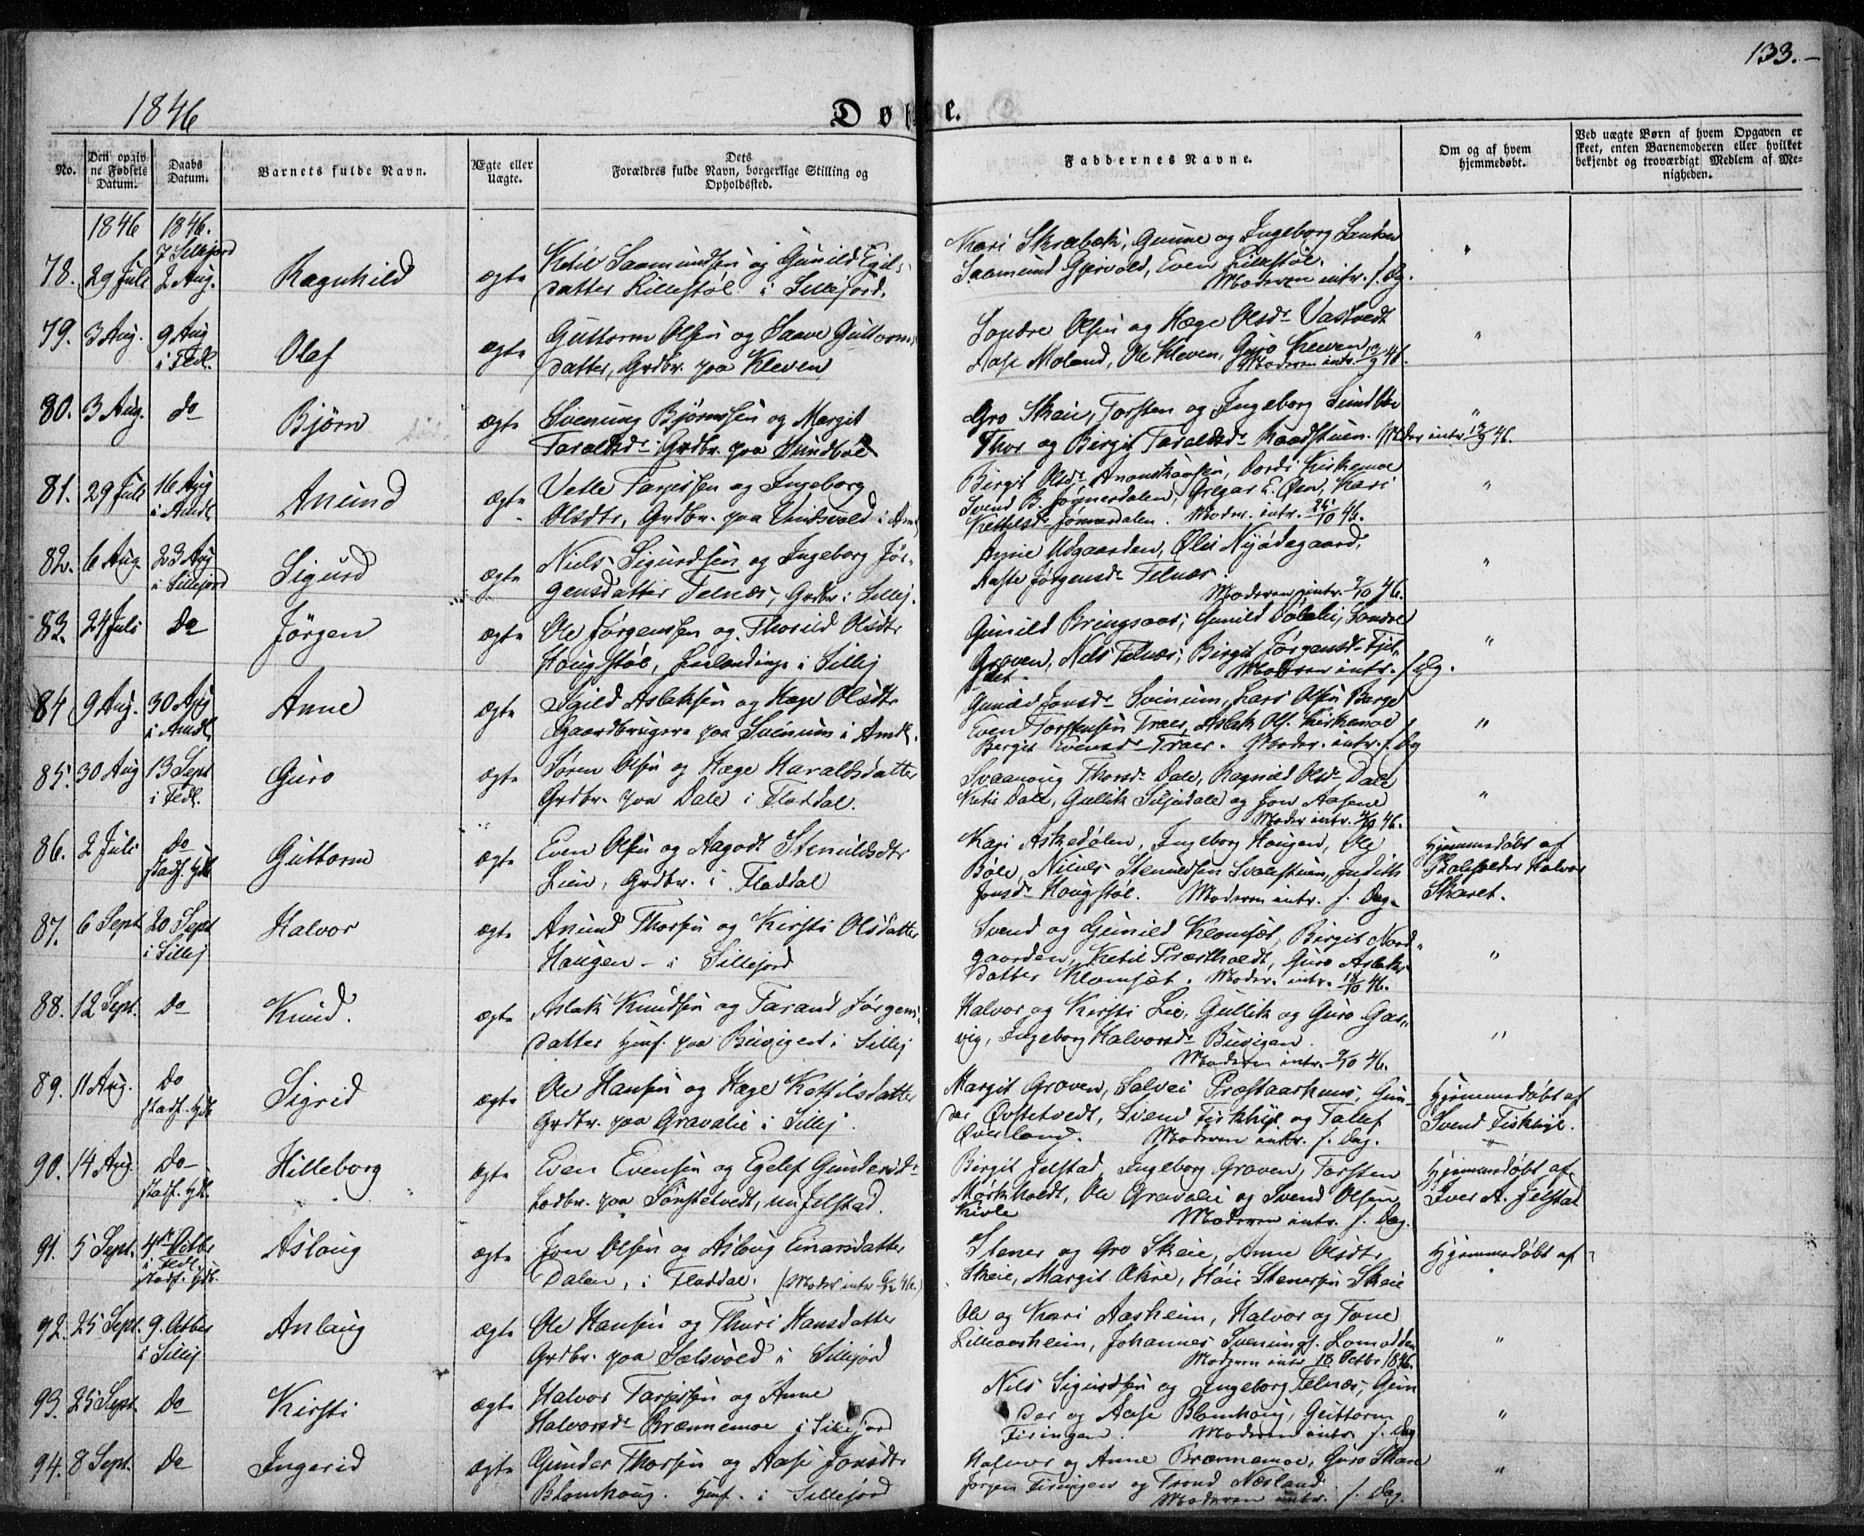 133.-
1846
Døbte.
No.
Den opgivne Fødsels Datum.
Daabs Datum.
Barnets fulde Navn.
Ægte eller Uægte.
Dets Forældres fulde Navn, borgerlige Stilling og Opholdssted.
Faddernes Navne.
Om og af hvem hjemmedøbt.
Ved uægte Børn af hvem Opgaven er skeet, enten Barnemoderen eller hvilket bekjendt og troværdigt Medlem af Menigheden.
1846 1846.
i Sillejord
78. 29 Juli 2 Aug. Ragnhild ægte Ketil Saamundsen og Gunild Egils-
datter Lillestøl i Sillejord.
Kari Skrabek, Gunne og Ingeborg
Saamund Gjervold, Even Lillestøl.
Moderen intr. s. Dg.
79. 3 Aug. 9 Aug i Fldl. Olaf ægte Guttorm Olsen og Saave Guttorms
datter, Grdbr. paa Kleven
Sondre Olsen og Hæge Olsdr Vastvedt
Aase Moland, Ole Kleven, Guro Kleven
Moderen intr. 46.
80. 3 Aug. do Bjørn ægte Svenung Bjørnsen og Margit
Taraldsdr Grdbr. paa Sundbøe
Gro Skeie, Torsten og Ingeborg Sundbøe
Thor og Birgit Taraldsdr Raadstuen. Moder intr 13/9 46.
81. 29 Juli 16 Aug i Amdl. Anund ægte Vetle Tarjeisen og Ingeborg
Olsdtr, Grdbr. paa i Am
Birgit Olsdr Kirkemoe
Svend B. Jønnesdalen, Gregar E. Øen, Kari
Kettilsdr Moder. intr. 46.
82. 6 Aug. 23 Aug i Sillejord Sigurd ægte Niels Sigurdsen og Ingeborg Jør-
gensdatter Telnæs, Grdbr i Sillej.
Anne Udgaarden, Nyødegaard,
Aaste Jørgensdr Telnæs.
Moderen intr. 46.
83. 24 Juli Do Jørgen ægte Ole Jørgensen og Thorild Olsdtr
Haugstøl, i Sillej
Gunild Bringsaas, Gunild Dølelie, Sondre
Groven, Nils Telnæs, Birgit Jørgensdr
Moderen intr. s. Dg.
84 9 Aug. 30 Aug i Amdl. Anne ægte Egild Aslaksen og Hæge Olsdtr
Gaardbrugere paa Svinum i Amdl.
Gunild Jonsdr Svinum, Lars Olsen Berge
Even Torstensen Traer, Aslak Ols. Kirkemoe
Bergit Evensdr Traer. Moder. intr. s. Dg
85. 30 Aug 13 Sept i Fldl. Guro ægte Søren Olsen og Hæge Haraldsdatter
Grdbr. paa Dale i Fladdal.
Svaanoug Thorsdr Dale, Ragnild Olsdr Dale
Ketil Dale, Gullik Siljudale og Jon Aasene
Moder intr. 46.
86. 2 Juli Do stadf. Hdb Guttorm ægte Even Olsen og Aagodt Stenulsdtr
Lien, Grdbr. i Fladdal
Kari Askedalen, Ingeborg Haugen, Ole
Bøle, Stenulsen Svalestuen, Judith
Jonsdr Haugstøl. Moderen intr. s. Dag.
Hjemmedøbt af
Skoleholder Halvor
Skaret.
87. 6 Sept 20 Sept i Sillej Halvor ægte Anund Thorsen og Kirsti Olsdatter
Haugen - i Sillejord
Svend og Gunild Klomset, Birgit Nord-
gaarden, Ketil Præstholdt, Guro Aslaks-
datter Klomset. Moder. intr. 18/10 46.
88. 12 Sept. Do Knud. ægte Aslak Knudsen og Tarand Jørgens-
datter Husf. paa Buvigen i Sillej
Halvor og Kirsti Lie, Gullik og Guro Gar-
vig, Ingeborg Halvorsdr Buvigen.
Moderen intr. 46.
89. 11 Aug. Do stadf. Hdb Sigrid ægte Ole Hansen og Hæge Kettilsdatter
Grdbr. paa Gravalie i Sillej.
Margit Groven, Salvei Præstaarhuus, Gun-
der Øvstetvedt, Svend Fiskhyl og Tallef
Øverland. Moderen intr. s. Dag.
Hjemmedøbt af
Svend Fiskhyl.
90. 14 Aug. Do- stadf. Hdb. Hilleborg ægte Even Evensen og Egelef Gundersdr
Lodbr. paa Tørstetvedt, nu Jelstad.
Birgit Jelstad, Ingeborg Groven, Torsten
Mørkholdt, Ole Gravalie og Svend Olsen
Kivle Moderen intr. s. Dag.
Hjemmedøbt af
Iver A. Jelstad
91. 5 Sept. 4de Octbr i Fldl. stadf. Hdb. Aslaug ægte Jon Olsen og Aslaug Einarsdatter
Dalen, i Fladdal. (Moder intr 46.)
Stener og Gro Skeie, Anne Olsdtr
Skeie, Margit Økre, Høie Stenersen Skeie
Hjemmedøbt af
92. 25 Sept. 9. Otbr i Sillej Anlaug ægte Ole Hansen og Thuri Hansdatter
Grdbr. paa Sælsvold i Sillejord
Ole og Kari Aasheim, Halvor og Tone
Lilleaasheim, Johannes Svenungs. Lonodden
Moderen intr 18 Octbr 1846.
93. 25 Sept Do Kirsti ægte Halvor Tarjeisen og Anne
Halvorsdr Brænnemoe i Sillejord
Nils Sigurdsen og Ingeborg Telnæs, Gun-
der og Aase Blomhaug, Guttorm
Tiringen. Moderen intr. s. Dag
94. 8 Sept. Do Ingerid ægte Gunder Thorsen og Aase Jonsdtr
Blomhaug. Husf. i Sillejord
og Anne Brænnemoe, Guro Skare
Jørgen Tiringen og Trond Næsland
Moderen intr. s. Dag.